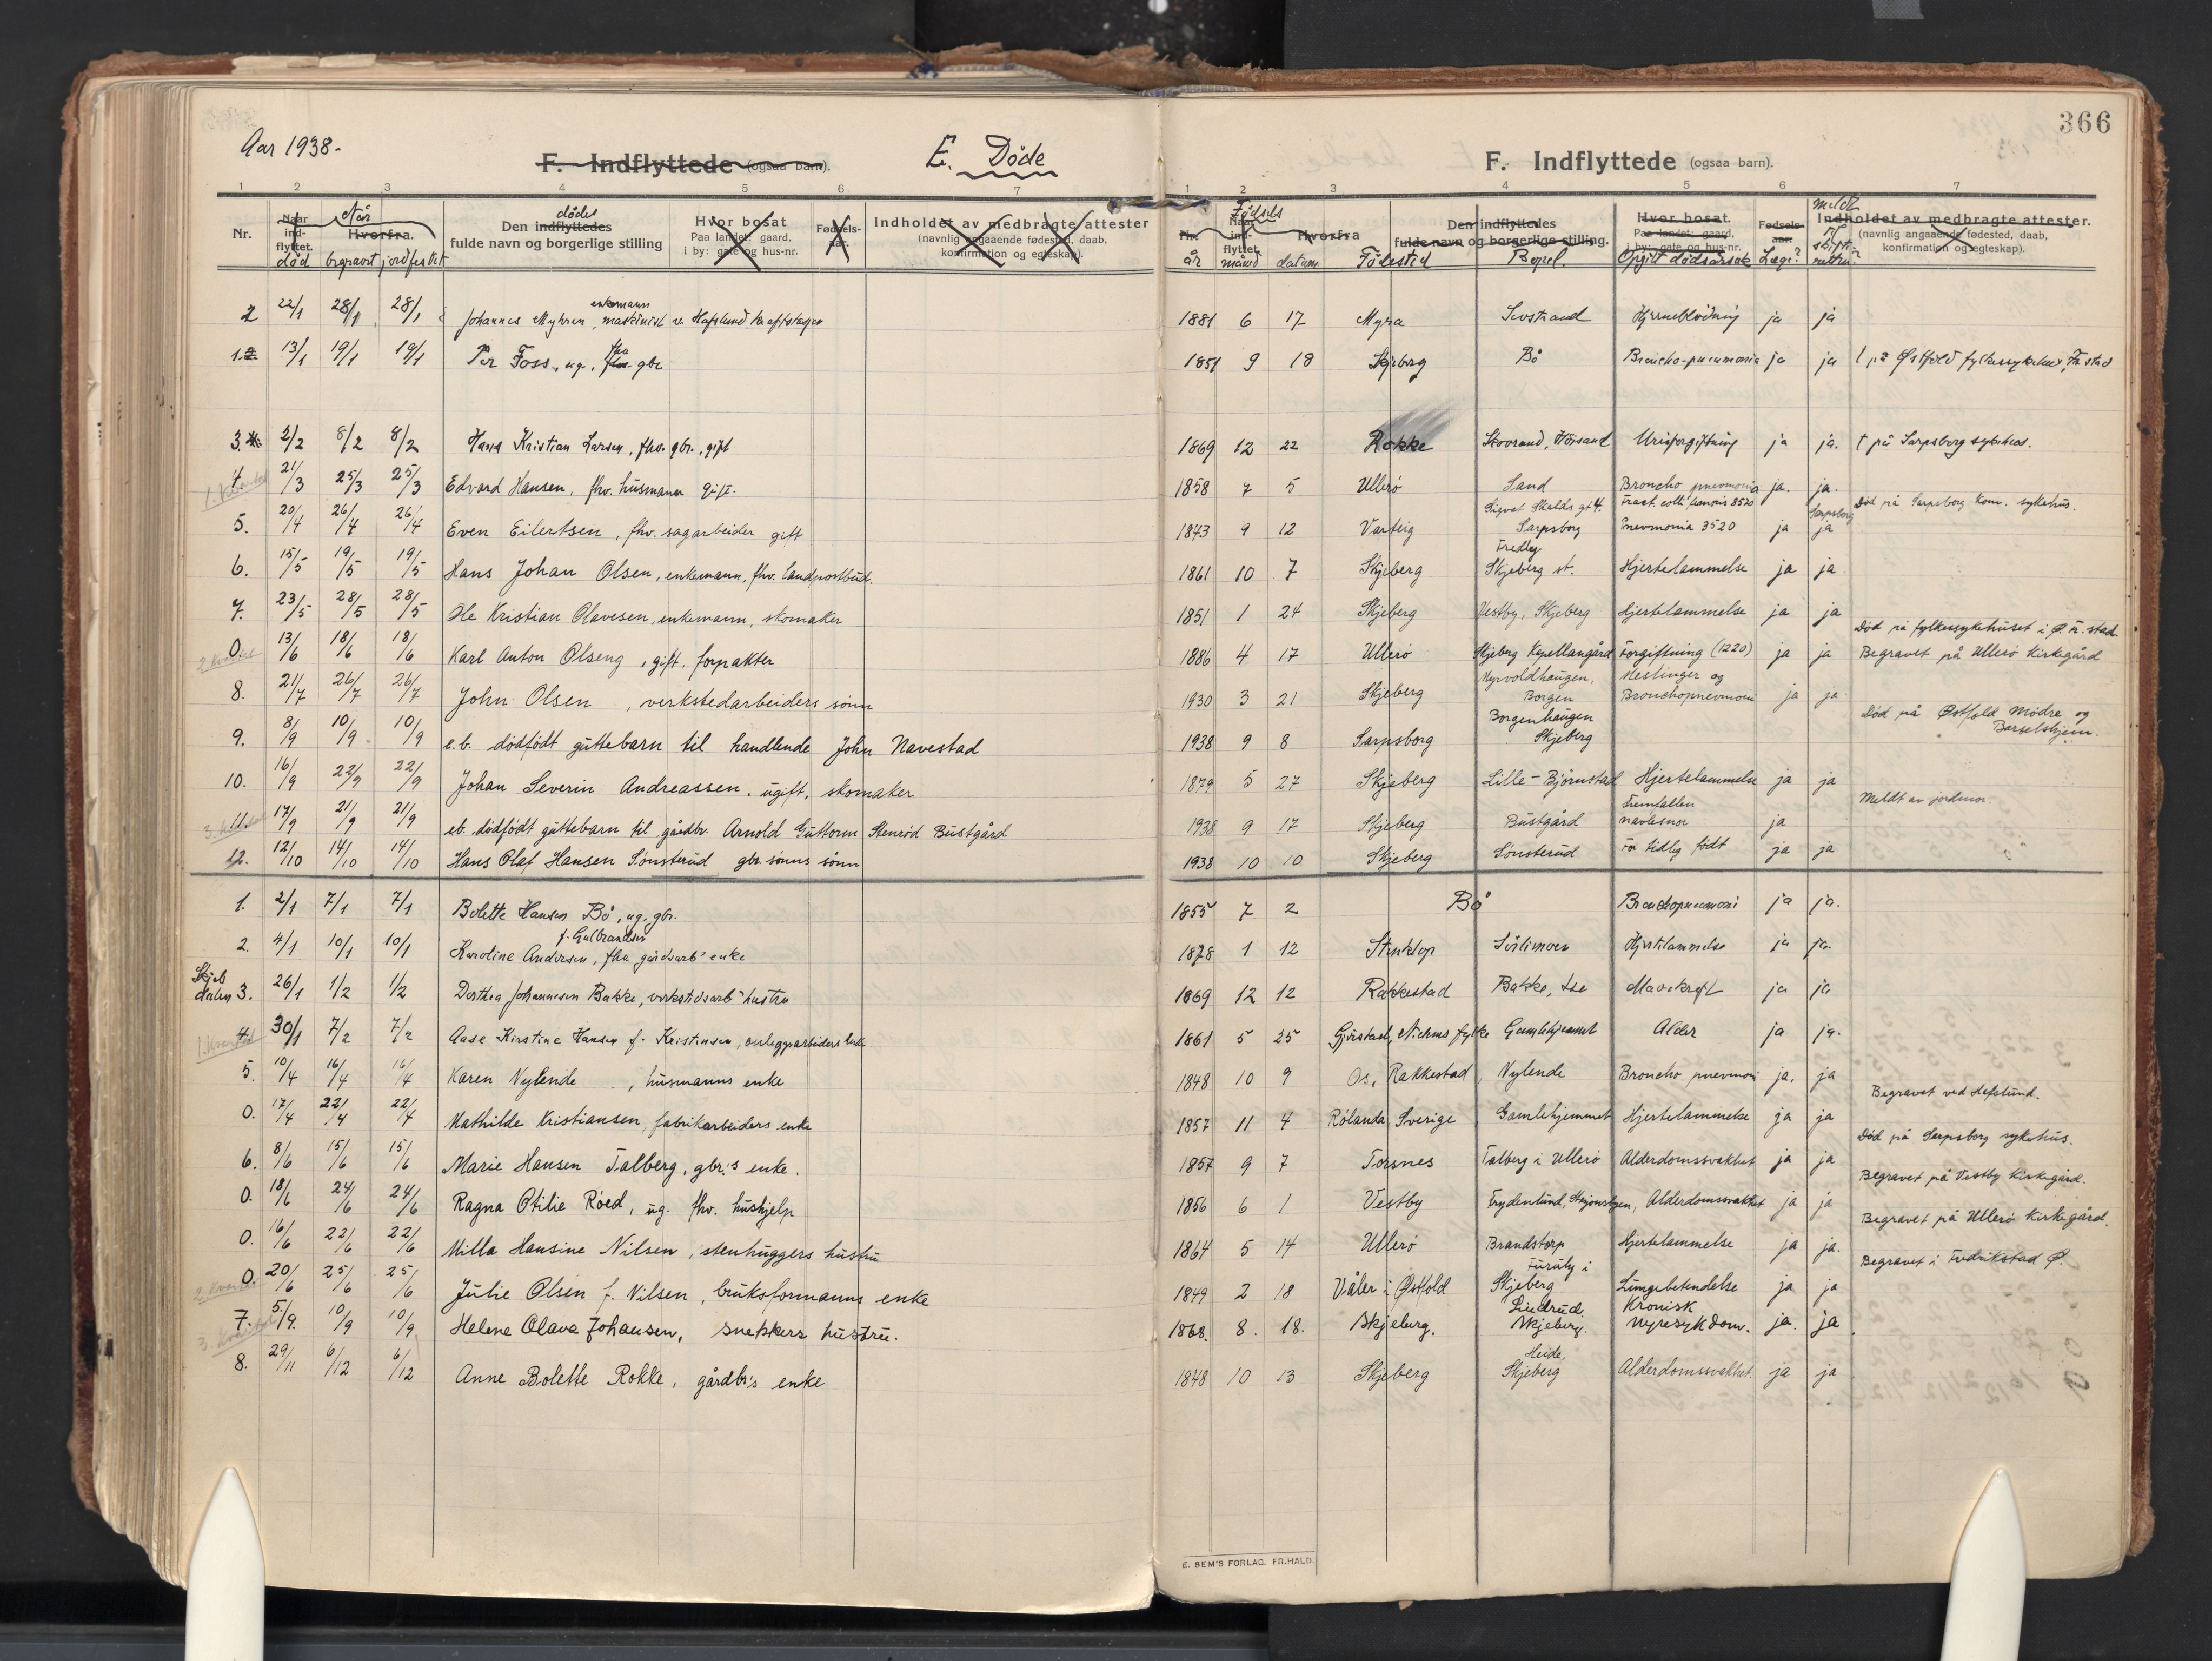 366
Aar 1938.
F. Indflyttede (ogsaa barn).
E. Døde
F. Indflyttede (ogsaa barn).
1 2 3 4 5 6 7
1 2 3 4 5 6 7
Nr. Naar indflyttet. Hvorfra. Den indflyttedes fulde navn og borgerlige stilling Hvor bosat Paa landet: gaard, i by: gate og hus-nr. Fødselsaar. Indholdet av medbragte attester (navnlig angaaende fødested, daab, konfirmation og egteskap).
Når død begravet jordfestet dødes
Nr. Naar indflyttet Hvorfra Den indflyttedes fulde navn og borgerlige stilling. Hvor bosat. Paa landet: gaard, i by: gate og hus-nr. Fødselsaar. Indholdet av medbragte attester. (navnlig angaaende fødested, daab, konfirmation og egteskap).
Fødsels år måned datum Fødested Bopel. Opgitt dødsårsak Læge? meldt
2 22/1 28/1 28/1 Johannes Myhren, enkemann maskinist v. Hafslund kraftstasjon 1881 6 17 Myra Sovstrand Hjerneblødning ja ja
1. 13/1 19/1 19/1 Per Foss, ug. fhv. gbr 1851 9 18 Skjeberg Bø Broncho-pneumonia ja ja † på Østfold fylkessykehus, Fr.stad
3. 2/2 8/2 8/2 Hans Kristian Larsen, fhv. gbr., gift 1869 12 22 Rokke Skovrand, Høisand Urinforgiftning ja ja. † på Sarpsborg sykehus.
1. kvartal
4. 21/3 25/3 25/3 Edvard Hansen, fhv. husmann gift. 1858 7 5 Ullerø Sand Broncho pneumonia ja. ja.
5. 20/4 26/4 26/4 Even Eilertsen, fhv. sagarbeider gift 1843 9 12 Varteig Sigvat Skalds gt 4. Sarpsborg Fract. colli femoris 8520 Pnevmonia 3520 ja Sarpsborg ja Død på Sarpsborg kom. sykehus.
6. 15/5 19/5 19/5 Hans Johan Olsen, enkemann, fhv. landpostbud. 1861 10 7 Skjeberg Fredly Skjeberg st. Hjertelammelse ja ja
7. 23/5 28/5 28/5 Ole Kristian Olavesen, enkemann, skomaker 1851 1 24 Skjeberg Vestby, Skjeberg Hjertelammelse ja ja
2. kvartal
0. 13/6 18/6 18/6 Karl Anton Olseng, gift, forpakter 1886 4 17 Ullerø Skjeberg Kapellangård Forgiftning (1220) ja ja Død på fylkesykehuset i Ø. Fr.stad Begravet på Ullerø kirkegård
8. 21/7 26/7 26/7 John Olsen, verkstedarbeiders sønn 1930 3 21 Skjeberg Myrvoldhaugen, Borgen Meslinger og Bronchopnevmoni ja ja
9. 8/9 10/9 10/9 e.b. dødfødt guttebarn til handlende John Navestad 1938 9 8 Sarpsborg Borgenhaugen Skjeberg Død på Østfold Mødre og Barselshjem.
10. 16/9 22/9 22/9 Johan Severin Andreassen, ugift, skomaker 1879 5 27 Skjeberg Lille-Bjørnstad Hjertelammelse ja ja
3. kvartal
11. 17/9 21/9 21/9 eb. dødfødt guttebarn til gårdbr. Arnold Guttorm Stenrød Bustgård 1938 9 17 Skjeberg Bustgård Fremfallen navlesnor ja Meldt av jordmor.
12. 12/10 14/10 14/10 Hans Olaf Hansen Sønsterud gbr. sønns sønn 1938 10 10 Skjeberg Sønsterud For tidlig født ja ja
1. 2/1 7/1 7/1 Bolette Hansen Bø, ug. gbr. 1855 7 2 Bø Bronchopneumoni ja ja.
2. 4/1 10/1 10/1 Karoline Andersen, f. Gulbrandsen fhv. gårdsarb's enke 1878 1 12 Stenklop Sørlimoen Hjertelammelse ja ja.
Skjebdalen 3. 26/1 1/2 1/2 Dorthea Johannesen Bakke, verkstedsarb's hustru 1869 12 12 Rakkestad Bakke, Ise Mavekreft ja ja
1. kvartal
4. 30/1 7/2 7/2 Aase Kirstine Hansen f. Kristensen, anleggsarbeiders enke 1861 5 25 Gjerstad, Nedenes fylke Gamlehjemmet Alder ja ja.
5. 10/4 16/4 16/4 Karen Nylende, husmanns enke 1848 10 9 Os, Rakkestad Nylende Broncho pnevmoni ja. ja
0. 17/4 22/4 22/4 Mathilde Kristiansen, fabrikarbeiders enke 1857 11 4 Rølanda, Sverige Gamlehjemmet Hjertelammelse ja ja Begravet ved Hafslund.
6. 8/6 15/6 15/6 Marie Hansen Talberg, gbr.'s enke. 1857 9 7 Torsnes Talberg i Ullerø Alderdomssvakhet ja ja Død på Sarpsborg sykehus.
0. 18/6 24/6 24/6 Ragna Otilie Røed, ug. fhv. hushjelp 1856 6 1 Vestby Frydenlund, Alderdomssvakhet ja ja Begravet på Vestby kirkegård.
0. 16/6 22/6 22/6 Milla Hansine Nilsen, stenhuggers hustru 1864 5 14 Ullerø Brandstorp Hjertelammelse ja ja. Begravet på Ullerø kirkegård.
2. kvartal
0. 20/6 25/6 25/6 Julie Olsen f. Nilsen, bruksformanns enke 1849 2 18 Våler i Østfold Furuly i Skjeberg Lungebetendelse ja ja Begravet i Fredrikstad Ø.
3. kvartal
7. 5/9. 10/9 10/9 Helene Olava Johansen, snekkers hustru. 1868. 8. 18. Skjeberg. Lindrud. Skjeberg. Kronisk nyresykdom. ja. ja
8. 29/11 6/12 6/12 Anne Bolette Rokke, gårdbr's enke 1848 10 13 Skjeberg Heide, Skjeberg Alderdomssvakhet. ja ja
E. SEM'S FORLAG. FR.HALD.